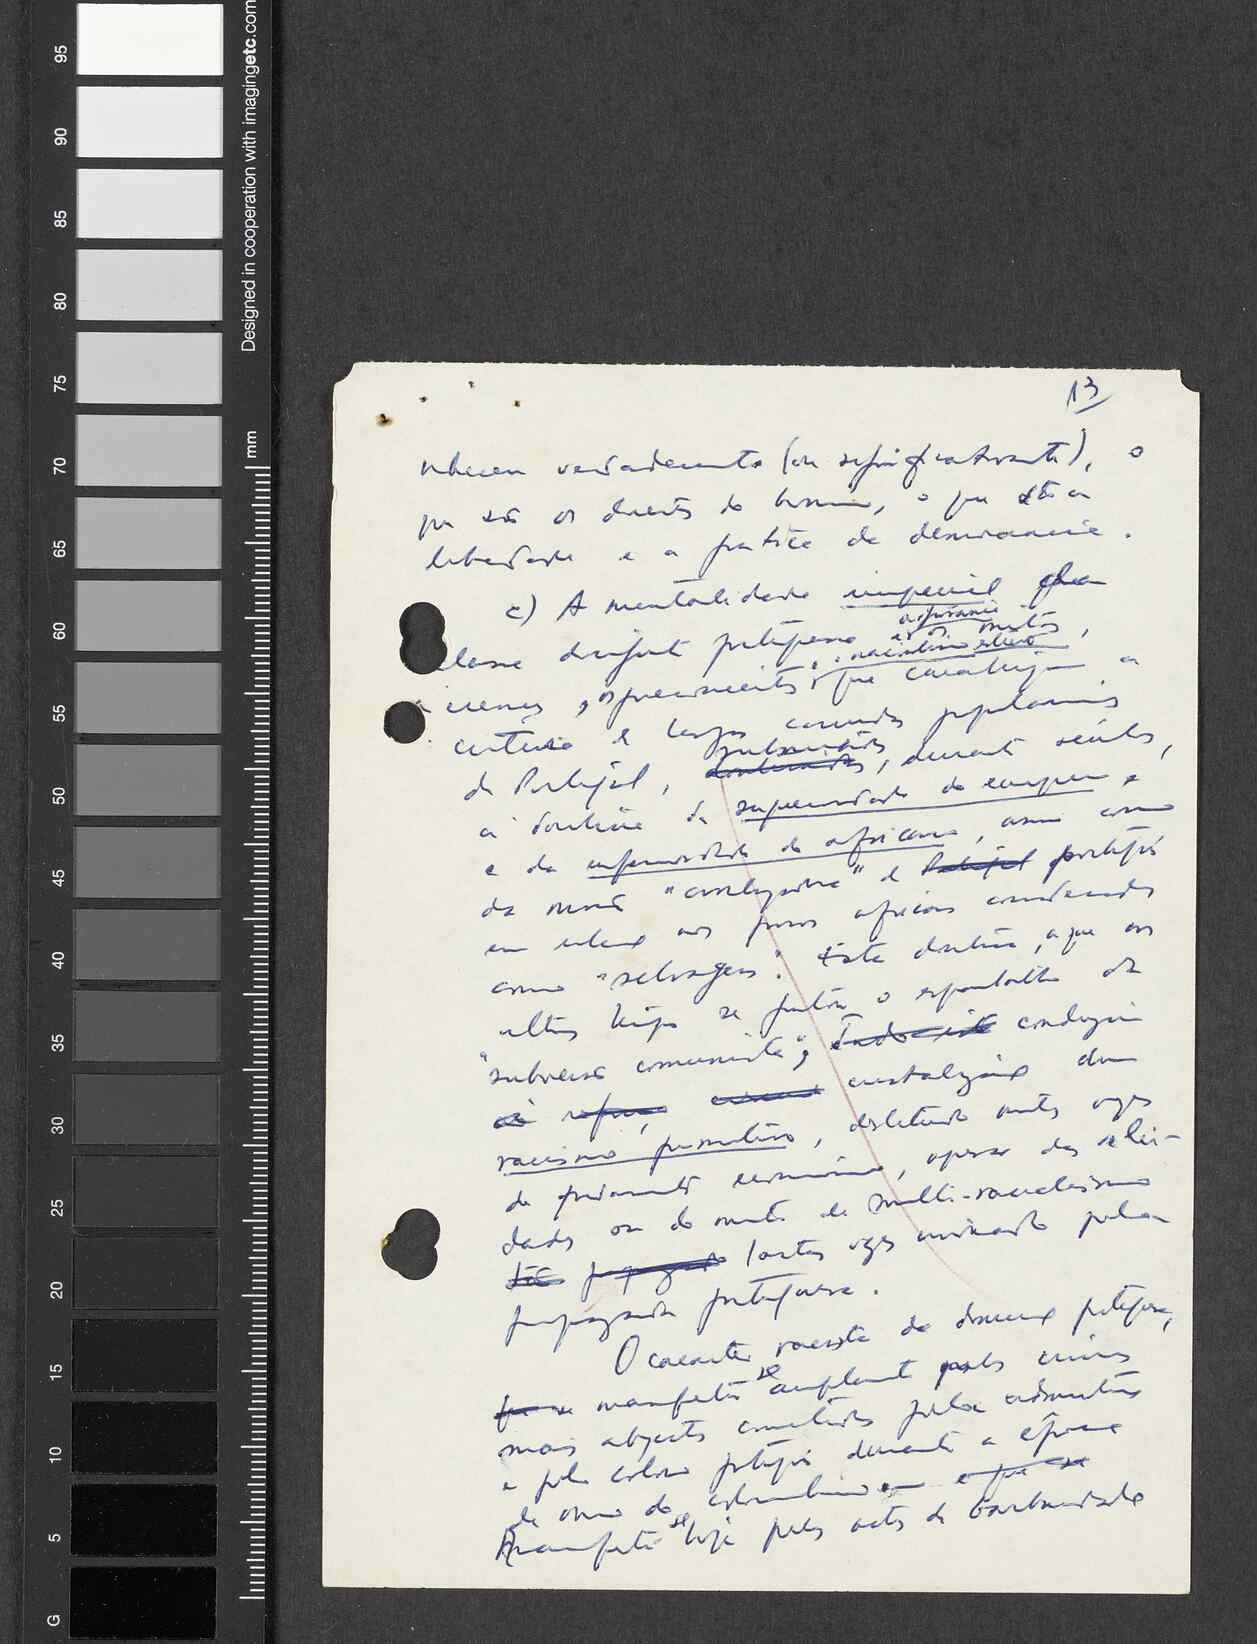 95
90
85
80
75
70
65
60
55
50
45
40
35
30
25
20
15
10
5
G
Designed in cooperation with imagingetc.com
mm
13
verdadeiramente (ou significativamente), o
que são os direitos do homem, o que é a
liberdade e a prática da democracia.
c) A mentalidade imperial da
classe dirigente portuguesa
a ignorância
e os mitos,
as crenças, os preconceitos que caracterizam a
cultura e largas camadas populares
de Portugal, submetidas, durante séculos,
à doutrina da superioridade do europeu
e da inferioridade do africano, assim como
da missão "civilizadora" do Portugal português
em relação aos povos africanos considerados
como "selvagens". Esta doutrina, a que nos
últimos tempos se juntou o espantalho da
"subversão comunista", Tudo isto conduziu
cristalização dum
racismo primitivo, destituído muitas vezes
de fundamento económico, apesar das
ou do mito do multi-racialismo
tantas vezes invocado pela
propaganda portuguesa.
O carácter racista da portuguesa,
que se manifestou-se amplamente pelos crimes
mais abjectos cometidos pelas autoridades
e pelos colonos portugueses durante a época
de ouro do colonialismo e que se
manifesta-se hoje pelos actos de barbaridade